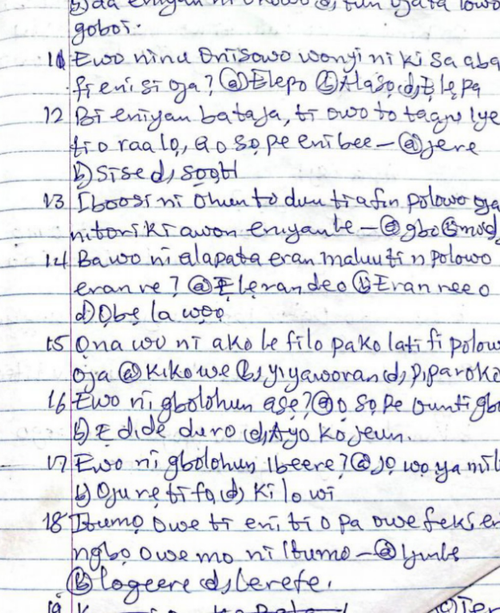 goboi.
11 Ewo ninu Onisowo wonyi ni ki sa aba
fi eni si oja? (a) Elepo (b) Alaso (d) Elepa
12 Bi eniyan bataja, ti owo to
ti o raalo, a o so pe eni bee — (a) jere
b) Sise d)
13 Iboosi ni Ohun to dun ti a fin polowo oja
nitori ki awon eniyan le — (a) gbo
14 Bawo ni alapata eran maluu ti n polowo
eran re? (a) Eleran deo (b) Eran ree o
d) Obe la woo
15 Ona wo ni a ko le filo pako lati fi polow
oja (a) Kikowe (b) yiyaworan (d) Piparoko
16 Ewo ni gbolohun ase? (a) o so pe ounti gb
b) E dide duro (d) Ayo ko jeun.
17 Ewo ni gbolohun Ibeere? (a) Jo wo ya mi
b) Oju re ti fo (d) Ki lo wi
18 Itumo Owe ti eni ti o pa owe
ngbo owe mo ni Itumo — (a)
(b) logeere d) lerefe.
19